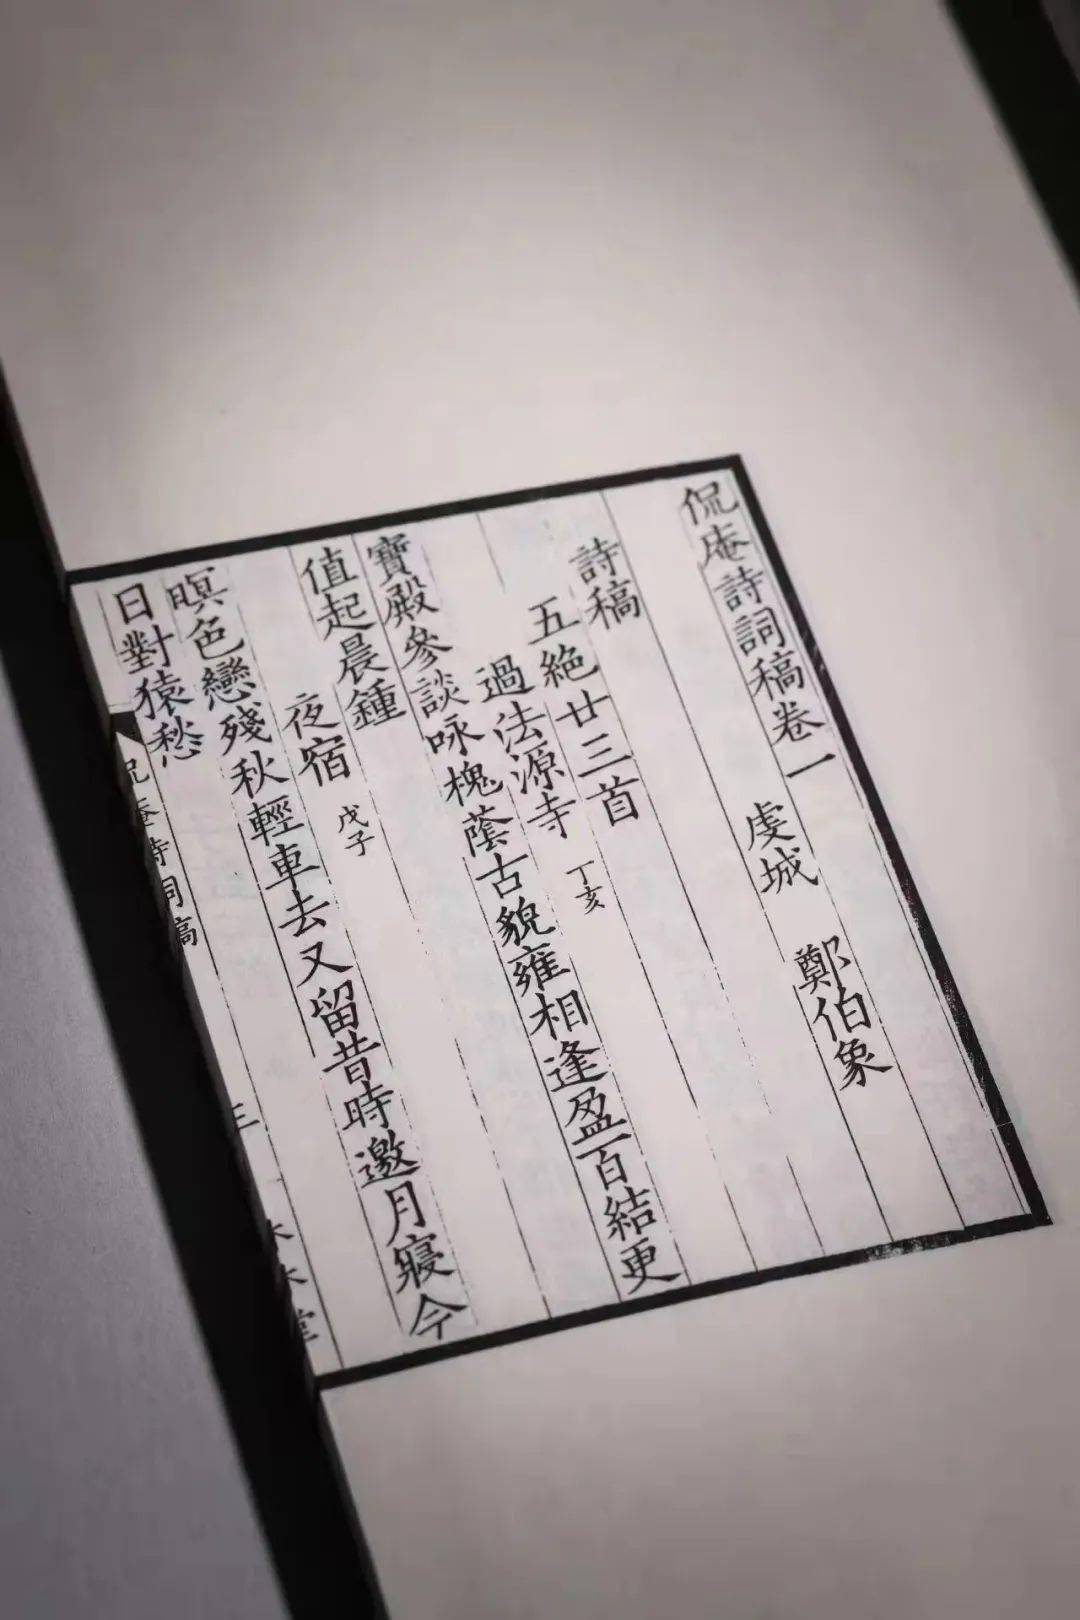 侃庵詩詞稿卷一 虞城 鄭伯象
詩稿
五絕廿三首
過法源寺 丁亥
寶殿參談咏槐蔭古貌雍相逢盈百結更
值起晨鍾
夜宿 戊子
暝色戀殘秋輕車去又留昔時邀月寢今
日對猿愁
侃庵詩詞稿